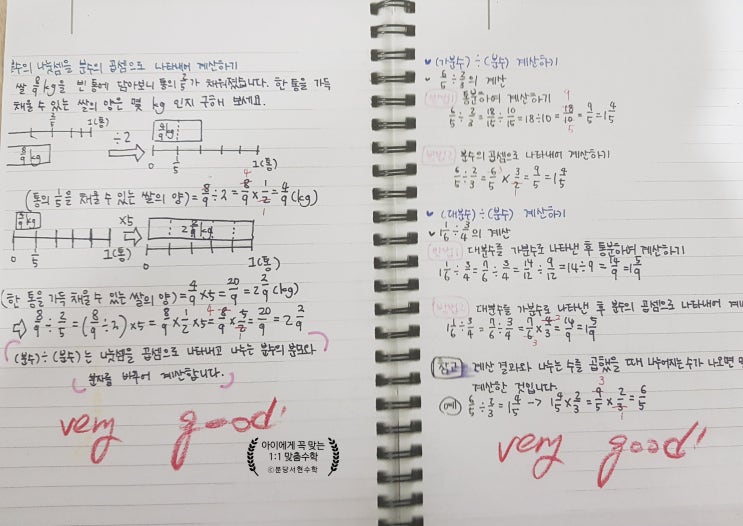 분수의 나눗셈을 분수의 곱셈으로 나타내어 계산하기
쌀 8/9 kg을 빈 통에 담아보니 통의 2/5가 채워졌습니다. 한 통을 가득
채울 수 있는 쌀의 양은 몇 kg 인지 구해 보세요.
2/5 1(통)
8/9 kg
÷2
4/9 kg
0 1/5 1(통)
(통의 1/5을 채울 수 있는 쌀의 양)=8/9÷2=8/9×1/2=4/9(kg)
4/9 kg
0 1/5 1(통)
×5
2 2/9 kg
0 1(통)
(한 통을 가득 채울 수 있는 쌀의 양)=4/9×5=20/9=2 2/9(kg)
⇨ 8/9÷2/5=(8/9÷2)×5=8/9×1/2×5=8/9×5/2=20/9=2 2/9
(분수)÷(분수)는 나눗셈을 곱셈으로 나타내고 나누는 분수의 분모와
분자를 바꾸어 계산합니다.
very good!
아이에게 꼭 맞는
1:1 맞춤수학
©분당서현수학
(가분수)÷(분수) 계산하기
6/5÷2/3의 계산
방법1 통분하여 계산하기
6/5÷2/3=18/15÷10/15=18÷10=18/10=9/5=1 4/5
방법2 분수의 곱셈으로 나타내어 계산하기
6/5÷2/3=6/5×3/2=9/5=1 4/5
(대분수)÷(분수) 계산하기
1 1/6÷3/4의 계산
방법1 대분수를 가분수로 나타낸 후 통분하여 계산하기
1 1/6÷3/4=7/6÷3/4=14/12÷9/12=14÷9=14/9=1 5/9
방법2 대분수를 가분수로 나타낸 후 분수의 곱셈으로 나타내어 계
1 1/6÷3/4=7/6÷3/4=7/6×4/3=14/9=1 5/9
참고 계산 결과와 나누는 수를 곱했을 때 나누어지는 수가 나오면
계산한 것입니다.
예 6/5÷2/3=1 4/5 -> 1 4/5×2/3=9/5×2/3=6/5
very good!